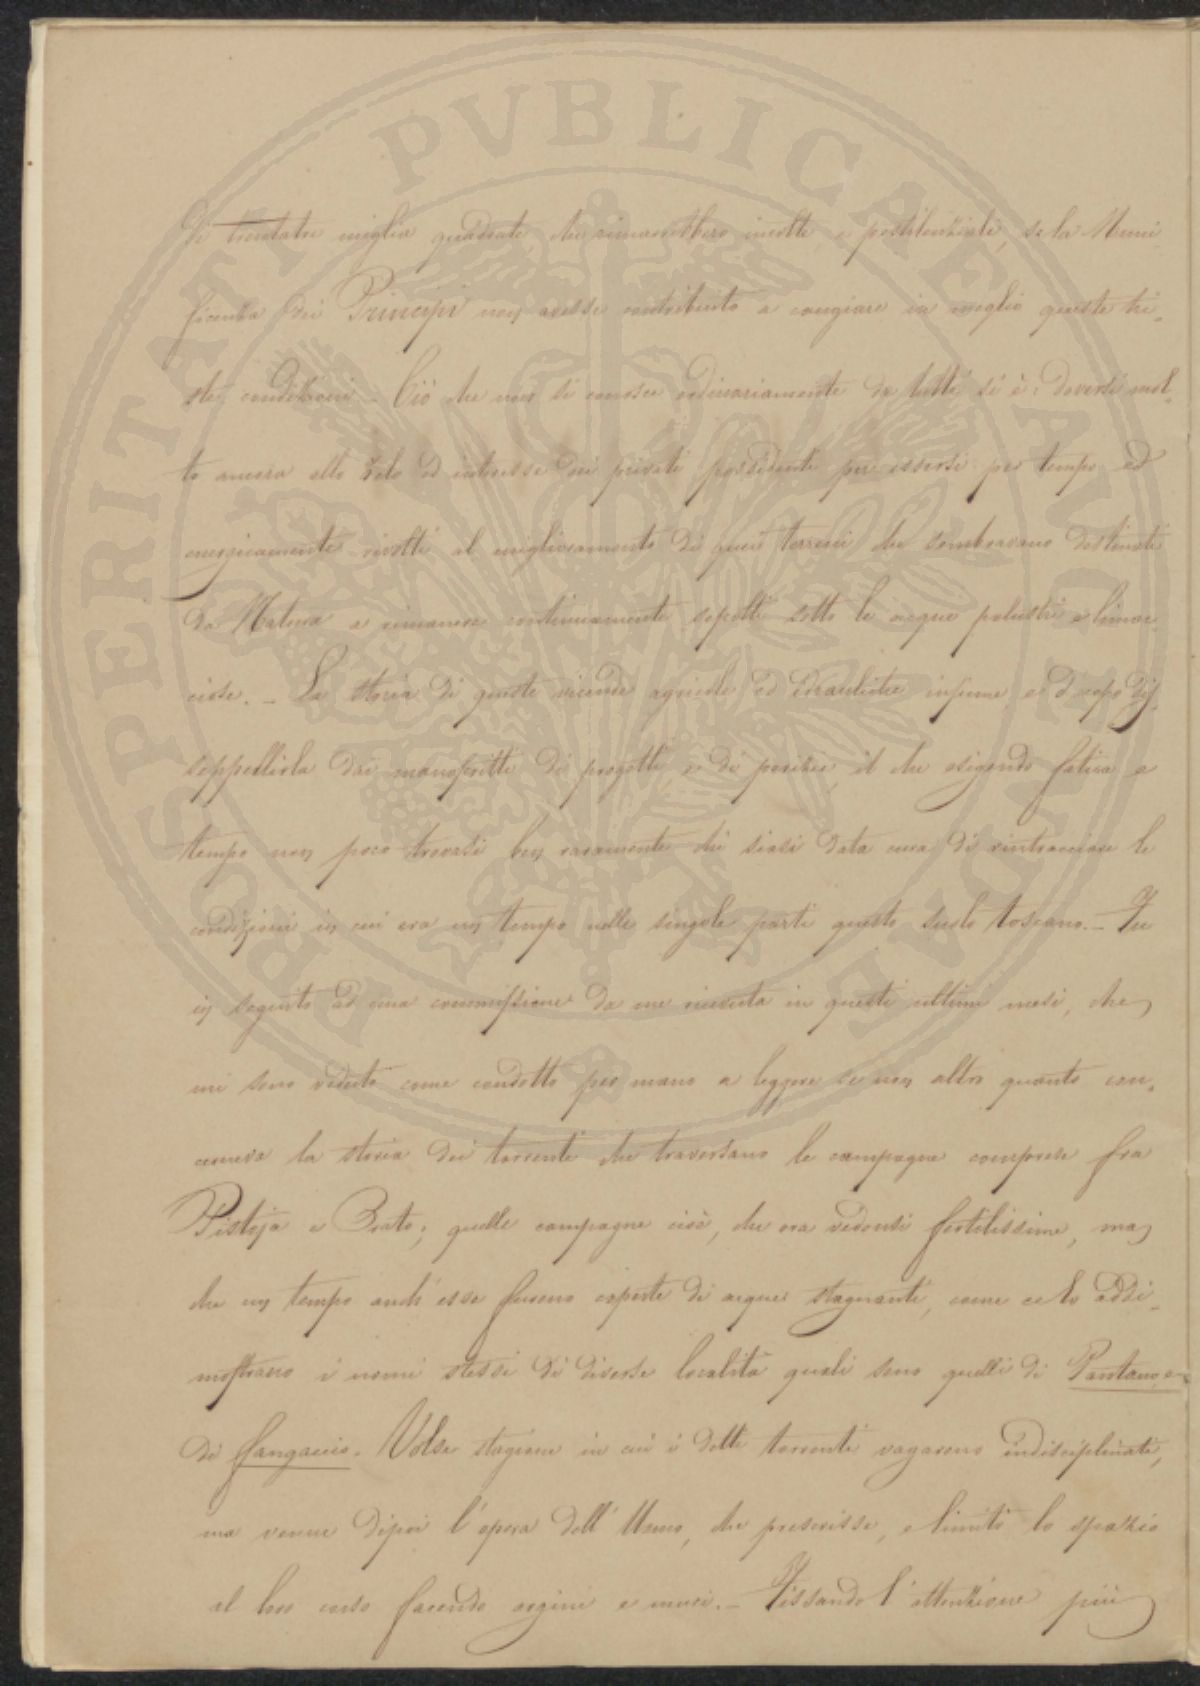 PROSPERITATI PVBLICAE AVGENDAE
di trentatre miglia quadrate che rimarrebbero incolte e pestilenziali, se la Muni-
ficenza dei Principi non avesse contribuito a cangiare in meglio queste tri-
ste condizioni. Ciò che non si conosce ordinariamente da tutti si è: doversi mol-
to ancora allo zelo ed interesse dei privati possidenti per essersi per tempo ed
energicamente rivolti al miglioramento di quei terreni che sembravano destinati
da Natura a rimanere continuamente sepolti sotto le acque palustri e limac-
ciose. – La storia di queste vicende agricole ed idrauliche insieme, è d'uopo dis-
seppellirla dai manoscritti di progetti, e di perizie, il che esigendo fatica e
tempo non poco trovasi ben raramente chi siasi data cura di rintracciare le
condizioni in cui era un tempo nelle singole parti questo suolo toscano. – Fu
in seguito ad una commissione da me ricevuta in questi ultimi mesi, che
mi sono veduto come condotto per mano a leggere se non altro quanto con-
cerneva la storia dei torrenti che traversano le campagne comprese fra
Pistoja e Prato; quelle campagne cioè, che ora vedonsi fertilissime, ma
che un tempo anch'esse furono coperte di acque stagnanti, come ce lo addi-
mostrano i nomi stessi di diverse località quali sono quelli di Pantano, e
di fangaccio. Volse stagione in cui i detti torrenti vagarono indisciplinati,
ma venne dipoi l'opera dell'Uomo, che prescrisse, e limitò lo spazio
al loro corso facendo argini e muri. – Fissando l'attenzione più